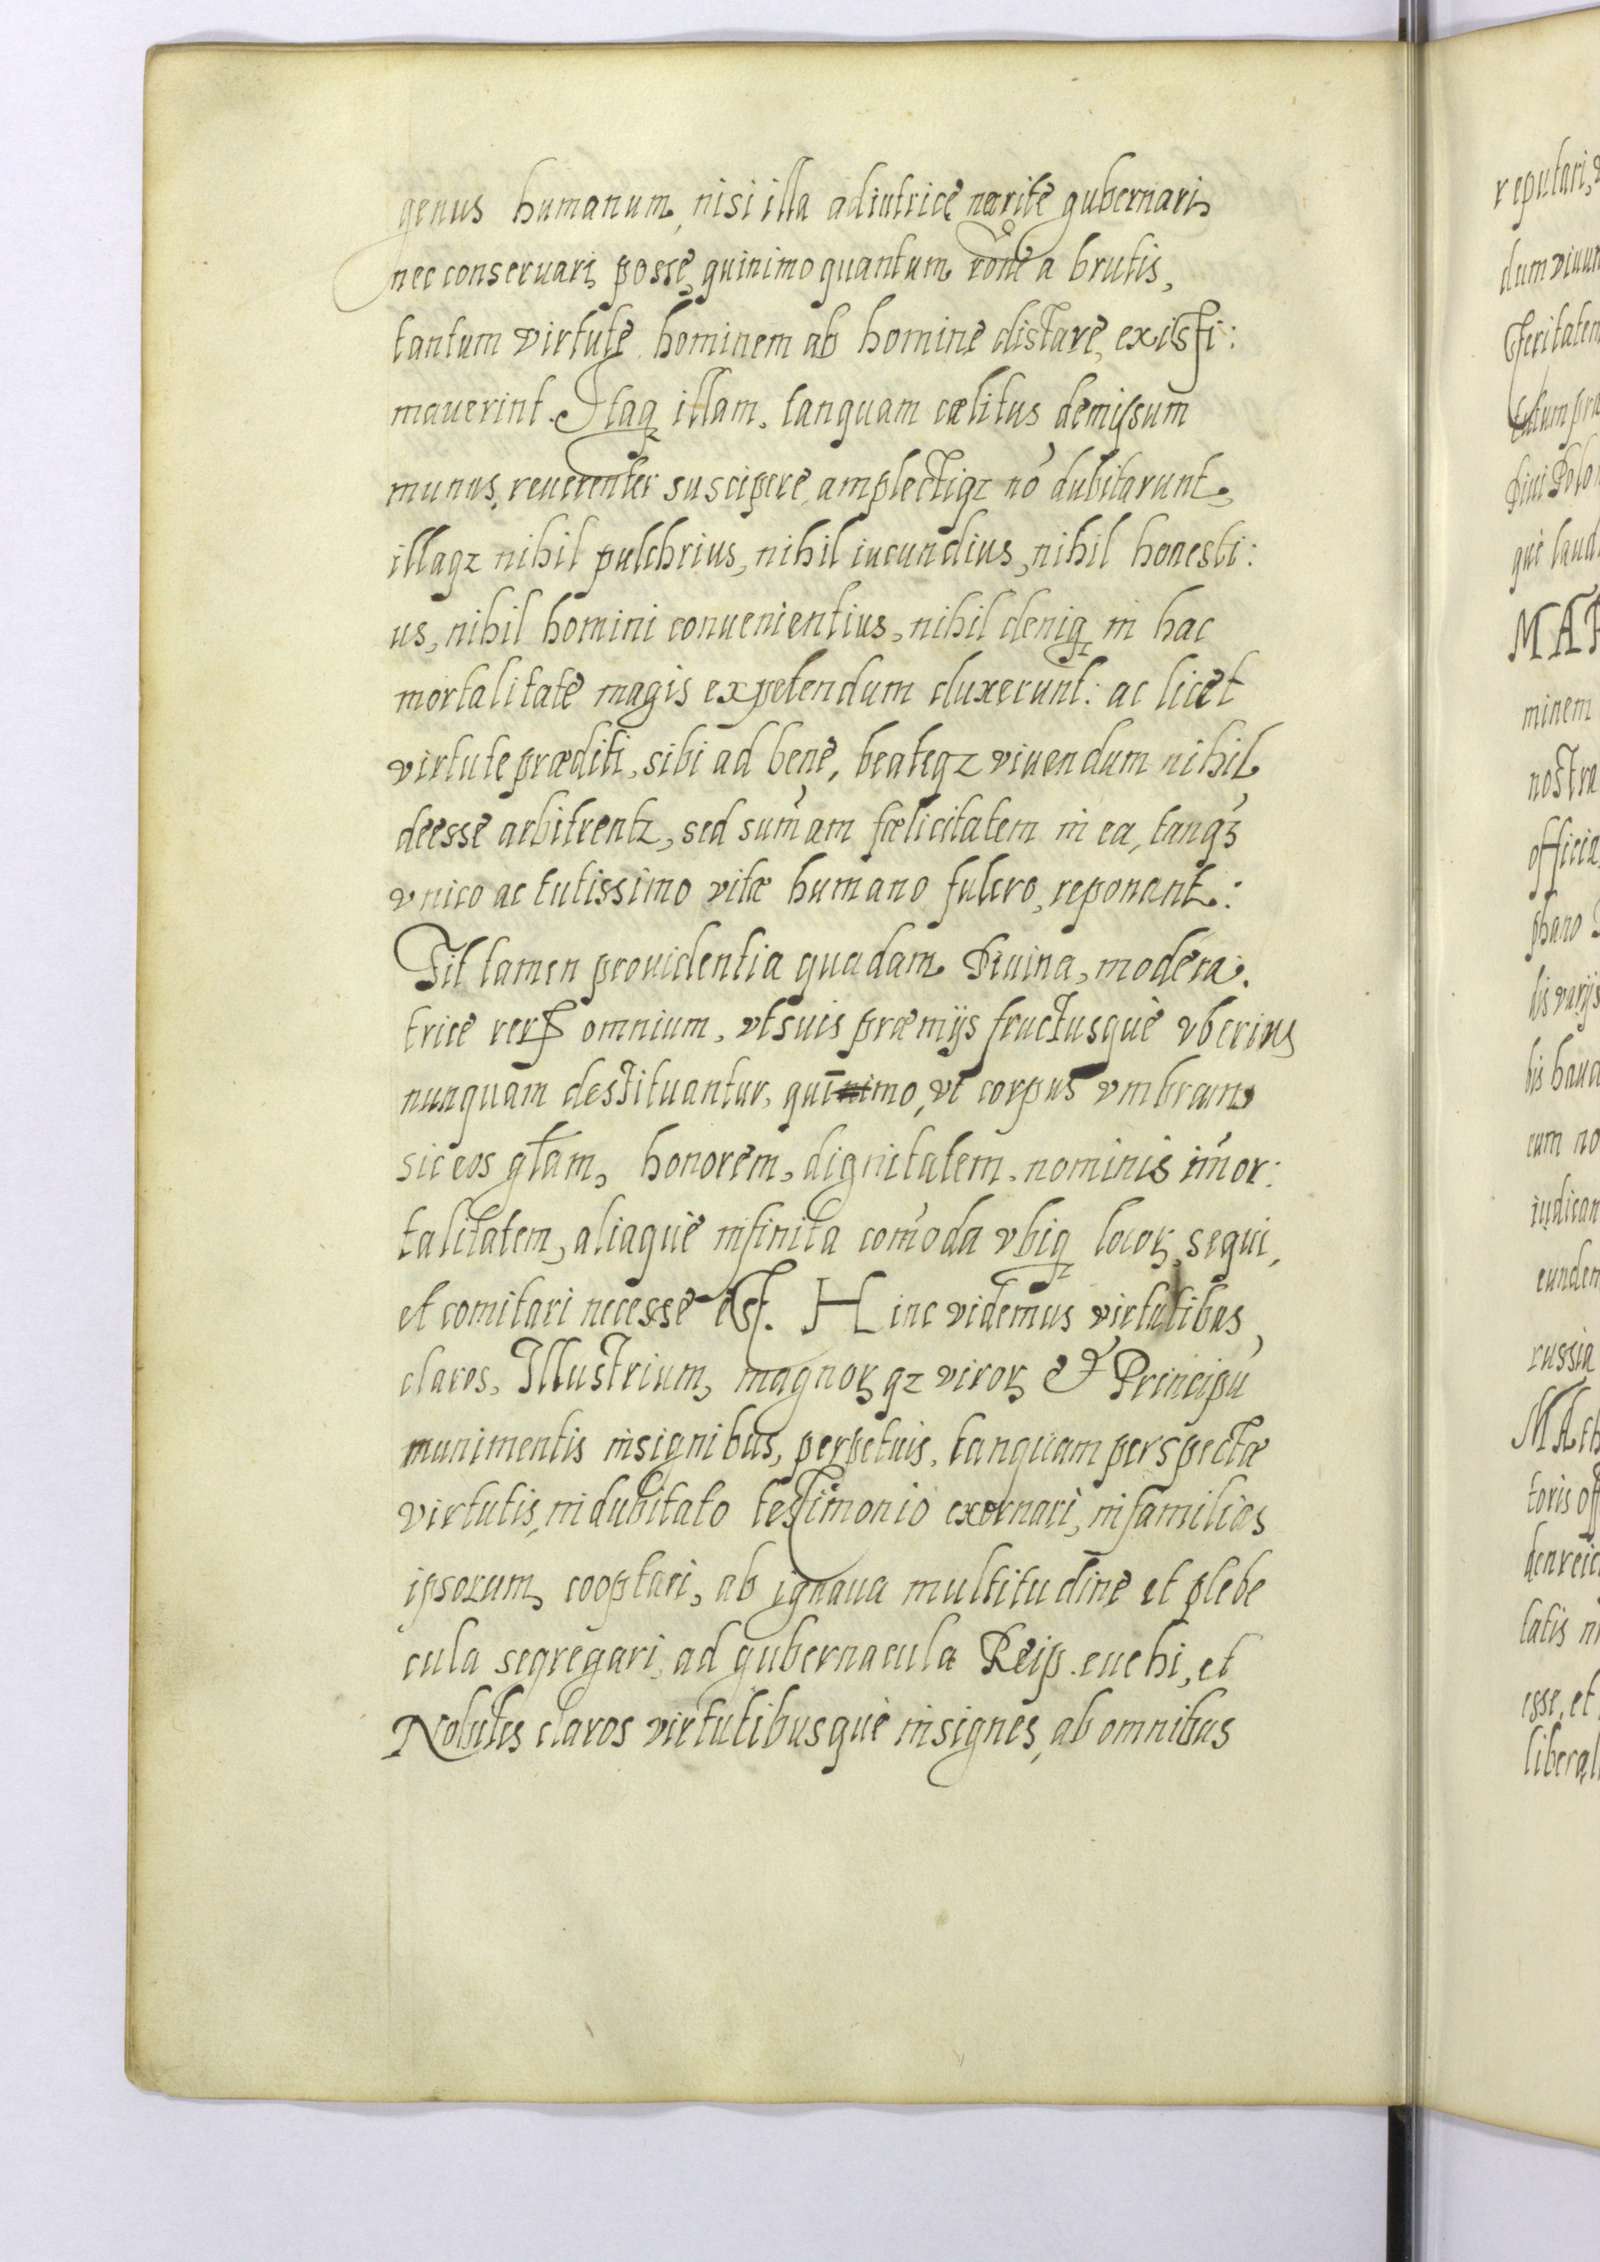 genus humanum, nisi illa adiutrice nec rite gubernari
nec conseruari posse, quinimo quantum rõne a brutis,
tantum virtute hominem ab homine distare, existi:
mauerint. Itaq illam, tanquam cælitus demissum
munus, reuerenter suscipere amplectiqz nõ dubitarunt,
illaqz nihil pulchrius, nihil iucundius, nihil honesti:
us, nihil homini conuenientius, nihil deniq in hac
mortalitate magis expetendum duxerunt: ac licet
virtute præditi, sibi ad bene, beateqz viuendum nihil
deesse arbitrentz, sed sum̃am fælicitatem in ea, tanqz
vnico ac tutissimo vitæ humano fulcro, reponant:
Fit tamen prouidentia quadam Diuina, modera:
trice rerꝝ omnium, vt suis præmijs fructusquè vberius
nunquam destituantur, quinimo, vt corpus vmbram
sic eos gl̃am, honorem, dignitatem, nominis im̃or:
talitatem, aliaquè infinita com̃oda vbiq locoꝝ sequi,
et comitari necesse est. Hinc videmus virtutibus
claros, Illustrium, magnoꝝqz viroꝝ & Principũ
munimentis insignibus, perpetuis, tanquam perspectæ
virtutis, indubitato testimonio exornari, in familias
ipsorum cooptari, ab ignaua multitudine et plebe
cula segregari, ad gubernacula Reip. euehi, et
Nobiles claros virtutibusquè insignes, ab omnibus
reputari,
dum viuun
MAR
minem
nostra
officia
phano
lis varijs
cum no
iudican
eundem
russia
toris off
tatis
esse, et
liberal